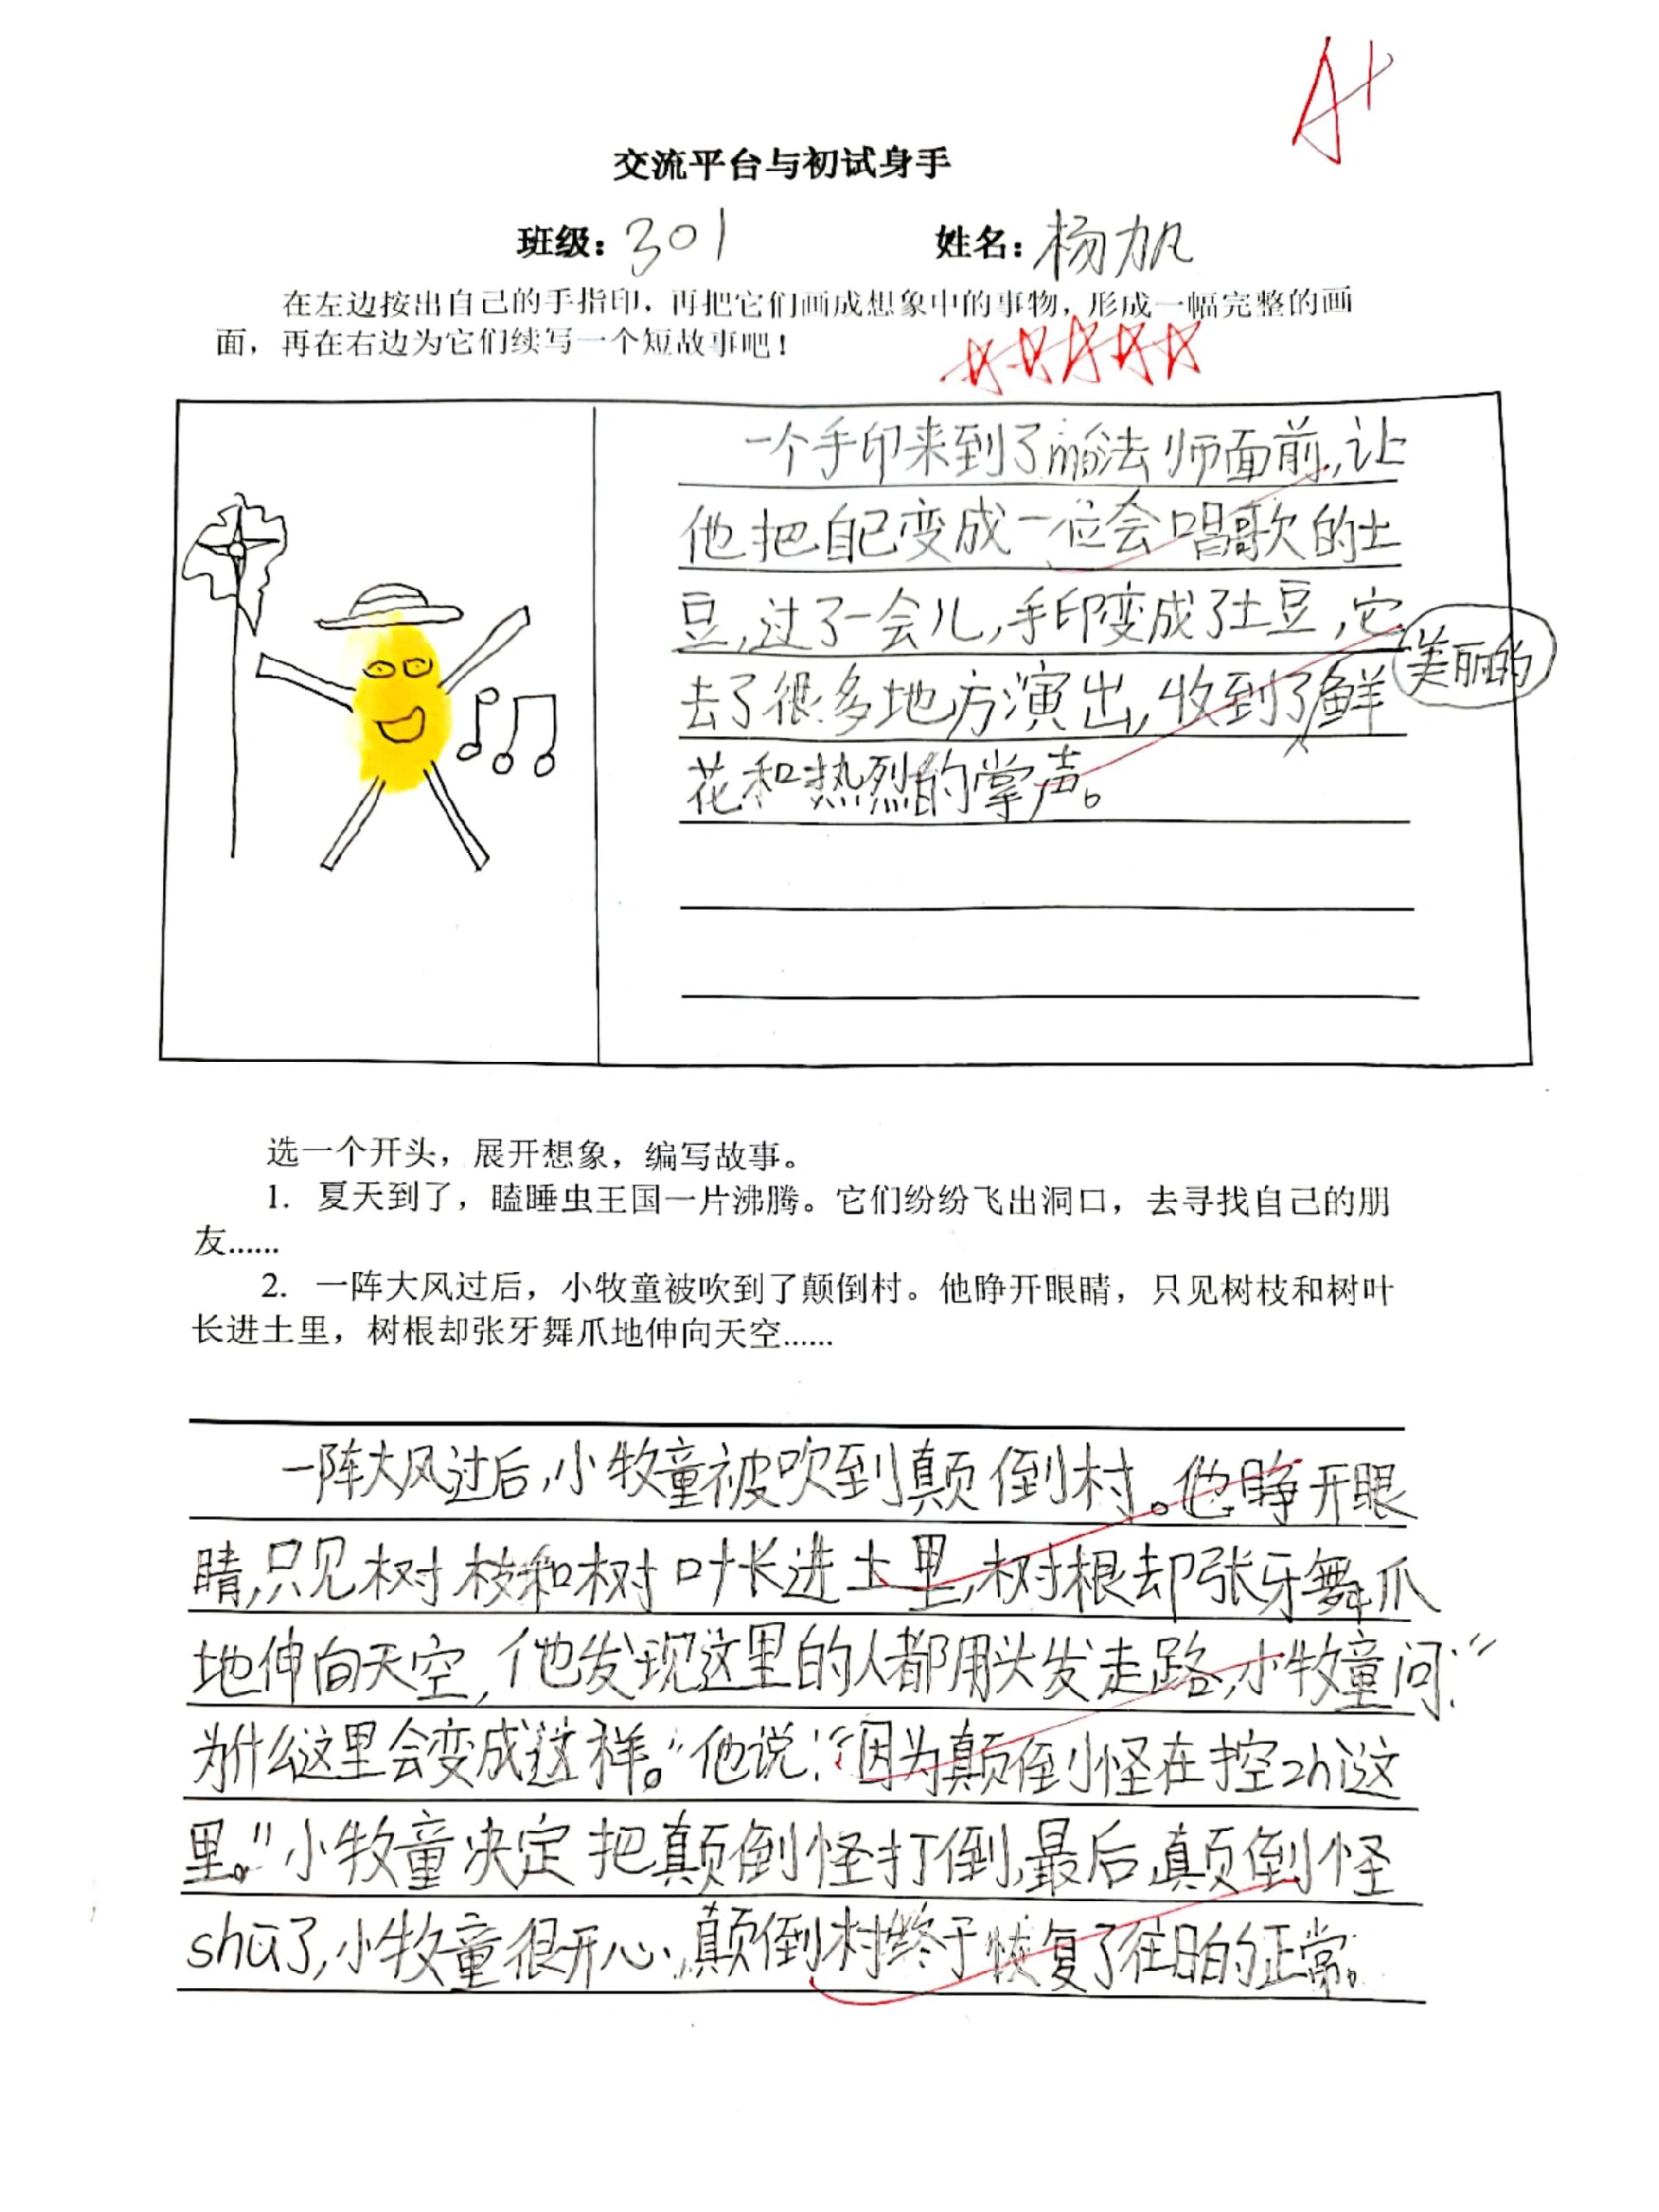 A+
交流平台与初试身手
班级：301 姓名：杨力凡
在左边按出自己的手指印，再把它们画成想象中的事物，形成一幅完整的画
面，再在右边为它们续写一个短故事吧！
一个手印来到了mó法师面前，让
他把自己变成一位会唱歌的土
豆，过了一会儿，手印变成了土豆，它
去了很多地方演出，收到了美丽的鲜
花和热烈的掌声。
选一个开头，展开想象，编写故事。
1. 夏天到了，瞌睡虫王国一片沸腾。它们纷纷飞出洞口，去寻找自己的朋
友……
2. 一阵大风过后，小牧童被吹到了颠倒村。他睁开眼睛，只见树枝和树叶
长进土里，树根却张牙舞爪地伸向天空……
一阵大风过后，小牧童被吹到颠倒村。他睁开眼
睛，只见树枝和树叶长进土里，树根却张牙舞爪
地伸向天空，他发现这里的人都用头发走路，小牧童问：“
为什么这里会变成这样。”他说：“因为颠倒小怪在控zhì这
里。”小牧童决定把颠倒怪打倒，最后颠倒怪
shū了，小牧童很开心，颠倒村终于恢复了往日的正常。